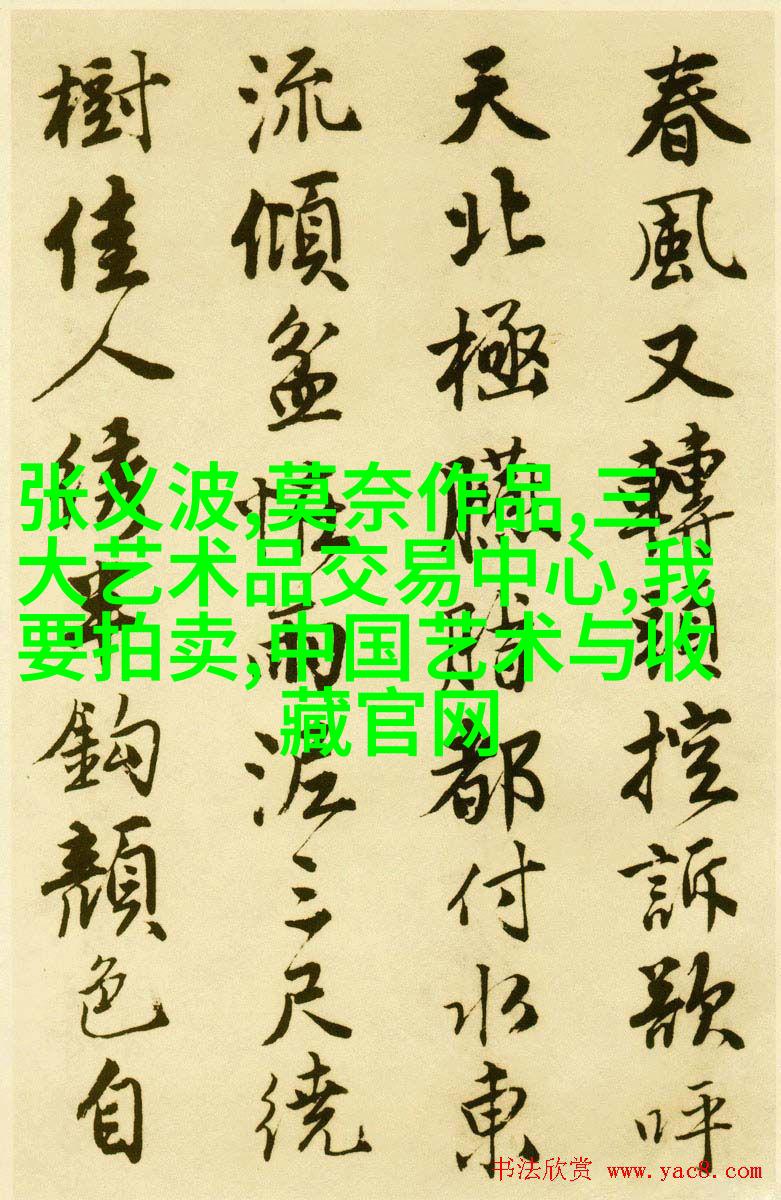 春風又轉控訴歌呼
天北極脂都付水東
流傾盆雨三尺繞
樹佳人半鈎顏色自
张义波,莫奈作品,三
大艺术品交易中心,我
要拍卖,中国艺术与收
藏官网
书法欣赏 www.yac8.com